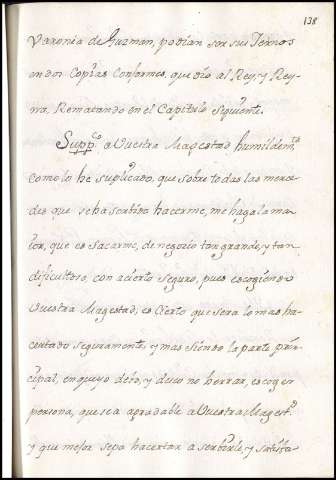 138
Varonia de Guzman, podian ser sus Yernos
en dos Copias Conformes, que dio al Rey, y Rey-
na, Rematando en el Capitulo siguiente.
Suppco. a Vuestra Magestad humildemte.
como lo he suplicado, que sobre todas las merce-
des que se ha serbido hacerme, me haga la ma-
ior, que es sacarme, de negocio tan grande, y tan
dificultoso, con acierto seguro, pues escogiendo
Vuestra Magestad, es Cierto que sera lo mas ha-
certado seguramente, y mas siendo la parte prin-
cipal, en quyo debo, y deceo no herrar, escoger
persona, que sea agradable a Vuestra Magestd.
y que mejor sepa hacertar a serbirle, y satisfa-